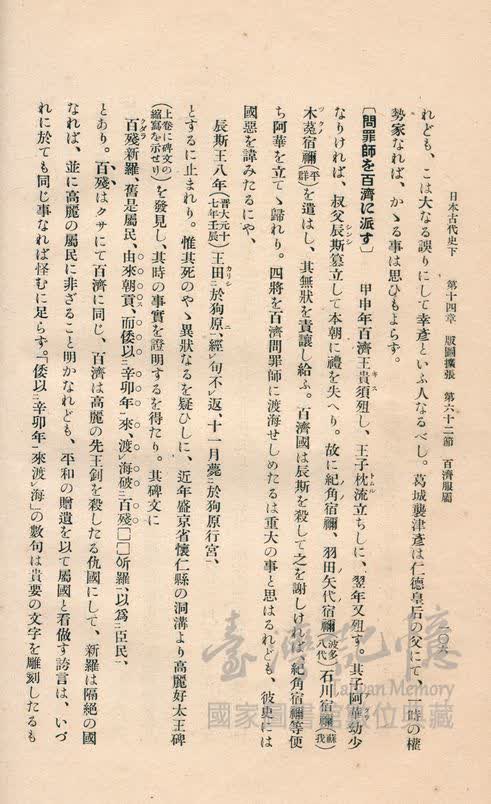 日本古代史下　第十四章　版圖擴張　第六十二節　百濟服屬
二〇六
れども、こは大なる誤りにして幸彥といふ人なるべし。葛城襲津彥は仁德皇后の父にて、一時の權
勢家なれば、かゝる事は思ひもよらず。
〔問罪師を百濟に派す〕　甲申年百濟王貴須殂し、王子枕流立ちしに、翌年又殂す。其子阿華幼少
なりければ、叔父辰斯簒立して本朝に禮を失へり。故に紀角宿禰、羽田矢代宿禰(波多八代)石川宿禰(蘇我)
木菟宿禰(平群)を遣はし、其無狀を責讓し給ふ。百濟國は辰斯を殺して之を謝しければ、紀角宿禰等便
ち阿華を立てゝ歸れり。四將を百濟問罪師に渡海せしめたるは重大の事と思はるれども、彼史には
國惡を諱みたるにや、
辰斯王八年(晉大元十七年壬辰)王田㆓於狗原㆒、經㆑旬不㆑返、十一月薨㆓於狗原行宮㆒、
とするに止まれり。惟其死のやゝ異狀なるを疑ひしに、近年盛京省懷仁縣の洞溝より高麗好太王碑
(上卷に碑文の縮寫を示せり)を發見し、其時の事實を證明するを得たり。其碑文に
百殘新羅、舊是屬民、由來朝貢、而倭以㆓辛卯年㆒來、渡㆑海破㆓百殘□□新羅㆒、以爲㆓臣民㆒、
とあり。百殘はクサにて百濟に同じ、百濟は高麗の先王釗を殺したる仇國にして、新羅は隔絕の國
なれば、並に高麗の屬民に非ざること明かなれども、平和の贈遺を以て屬國と看做す誇言は、いづ
れに於ても同じ事なれば怪むに足らず。「倭以㆓辛卯年㆒來渡㆑海」の數句は貴要の文字を雕刻したるも
臺灣記憶
Taiwan Memory
國家圖書館數位典藏